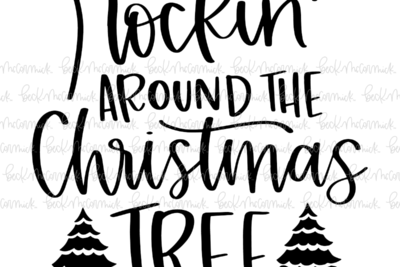 Rockin'
AROUND THE
Christmas
TREE